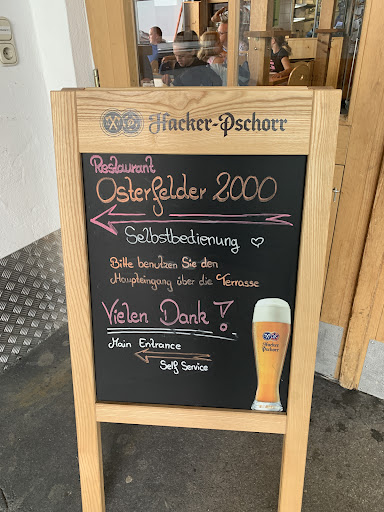 Hacker-Pschorr
Restaurant
Osterfelder 2000
Selbstbedienung
Bitte benutzen Sie den
Haupteingang über die Terrasse
Vielen Dank!
Main Entrance
Self Service
Hacker
Pschorr